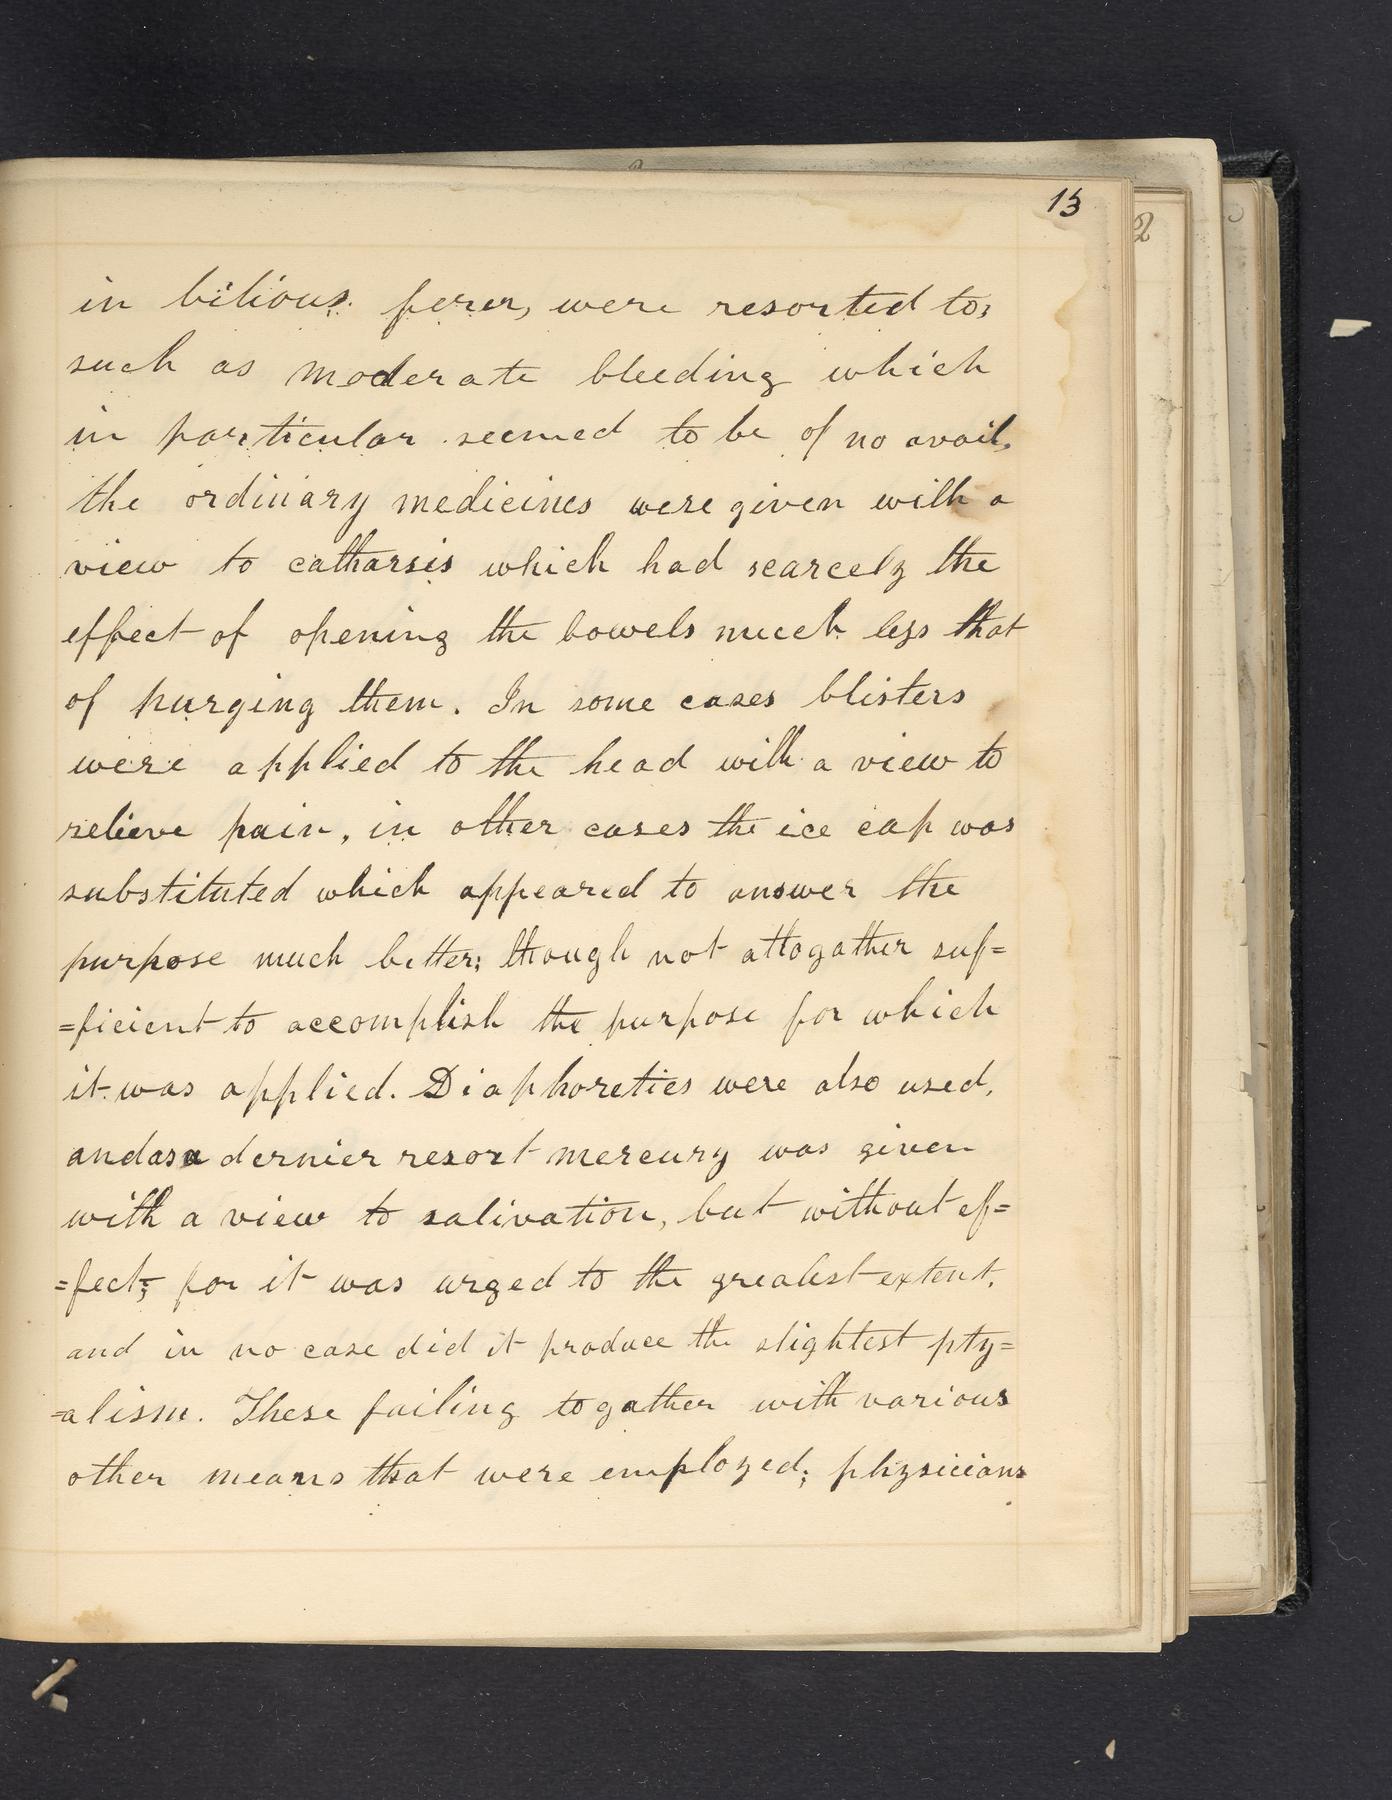 13
2
in bilious fever, were resorted to;
such as moderate bleeding which
in particular seemed to be of no avail.
the ordinary medicines were given with a
view to catharsis which had scarcely the
effect of opening the bowels much less that
of purging them. In some cases blisters
were applied to the head with a view to
relieve pain, in other cases the ice cap was
substituted which appeared to answer the
purpose much better; though not altogather suf=
=ficient to accomplish the purpose for which
it was applied. Diaphoretics were also used,
and as a dernier resort mercury was given
with a view to salivation, but without ef=
=fect; for it was urged to the greatest extent,
and in no case did it produce the slightest pty=
=alism. These failing togather with various
other means that were employed; physicians